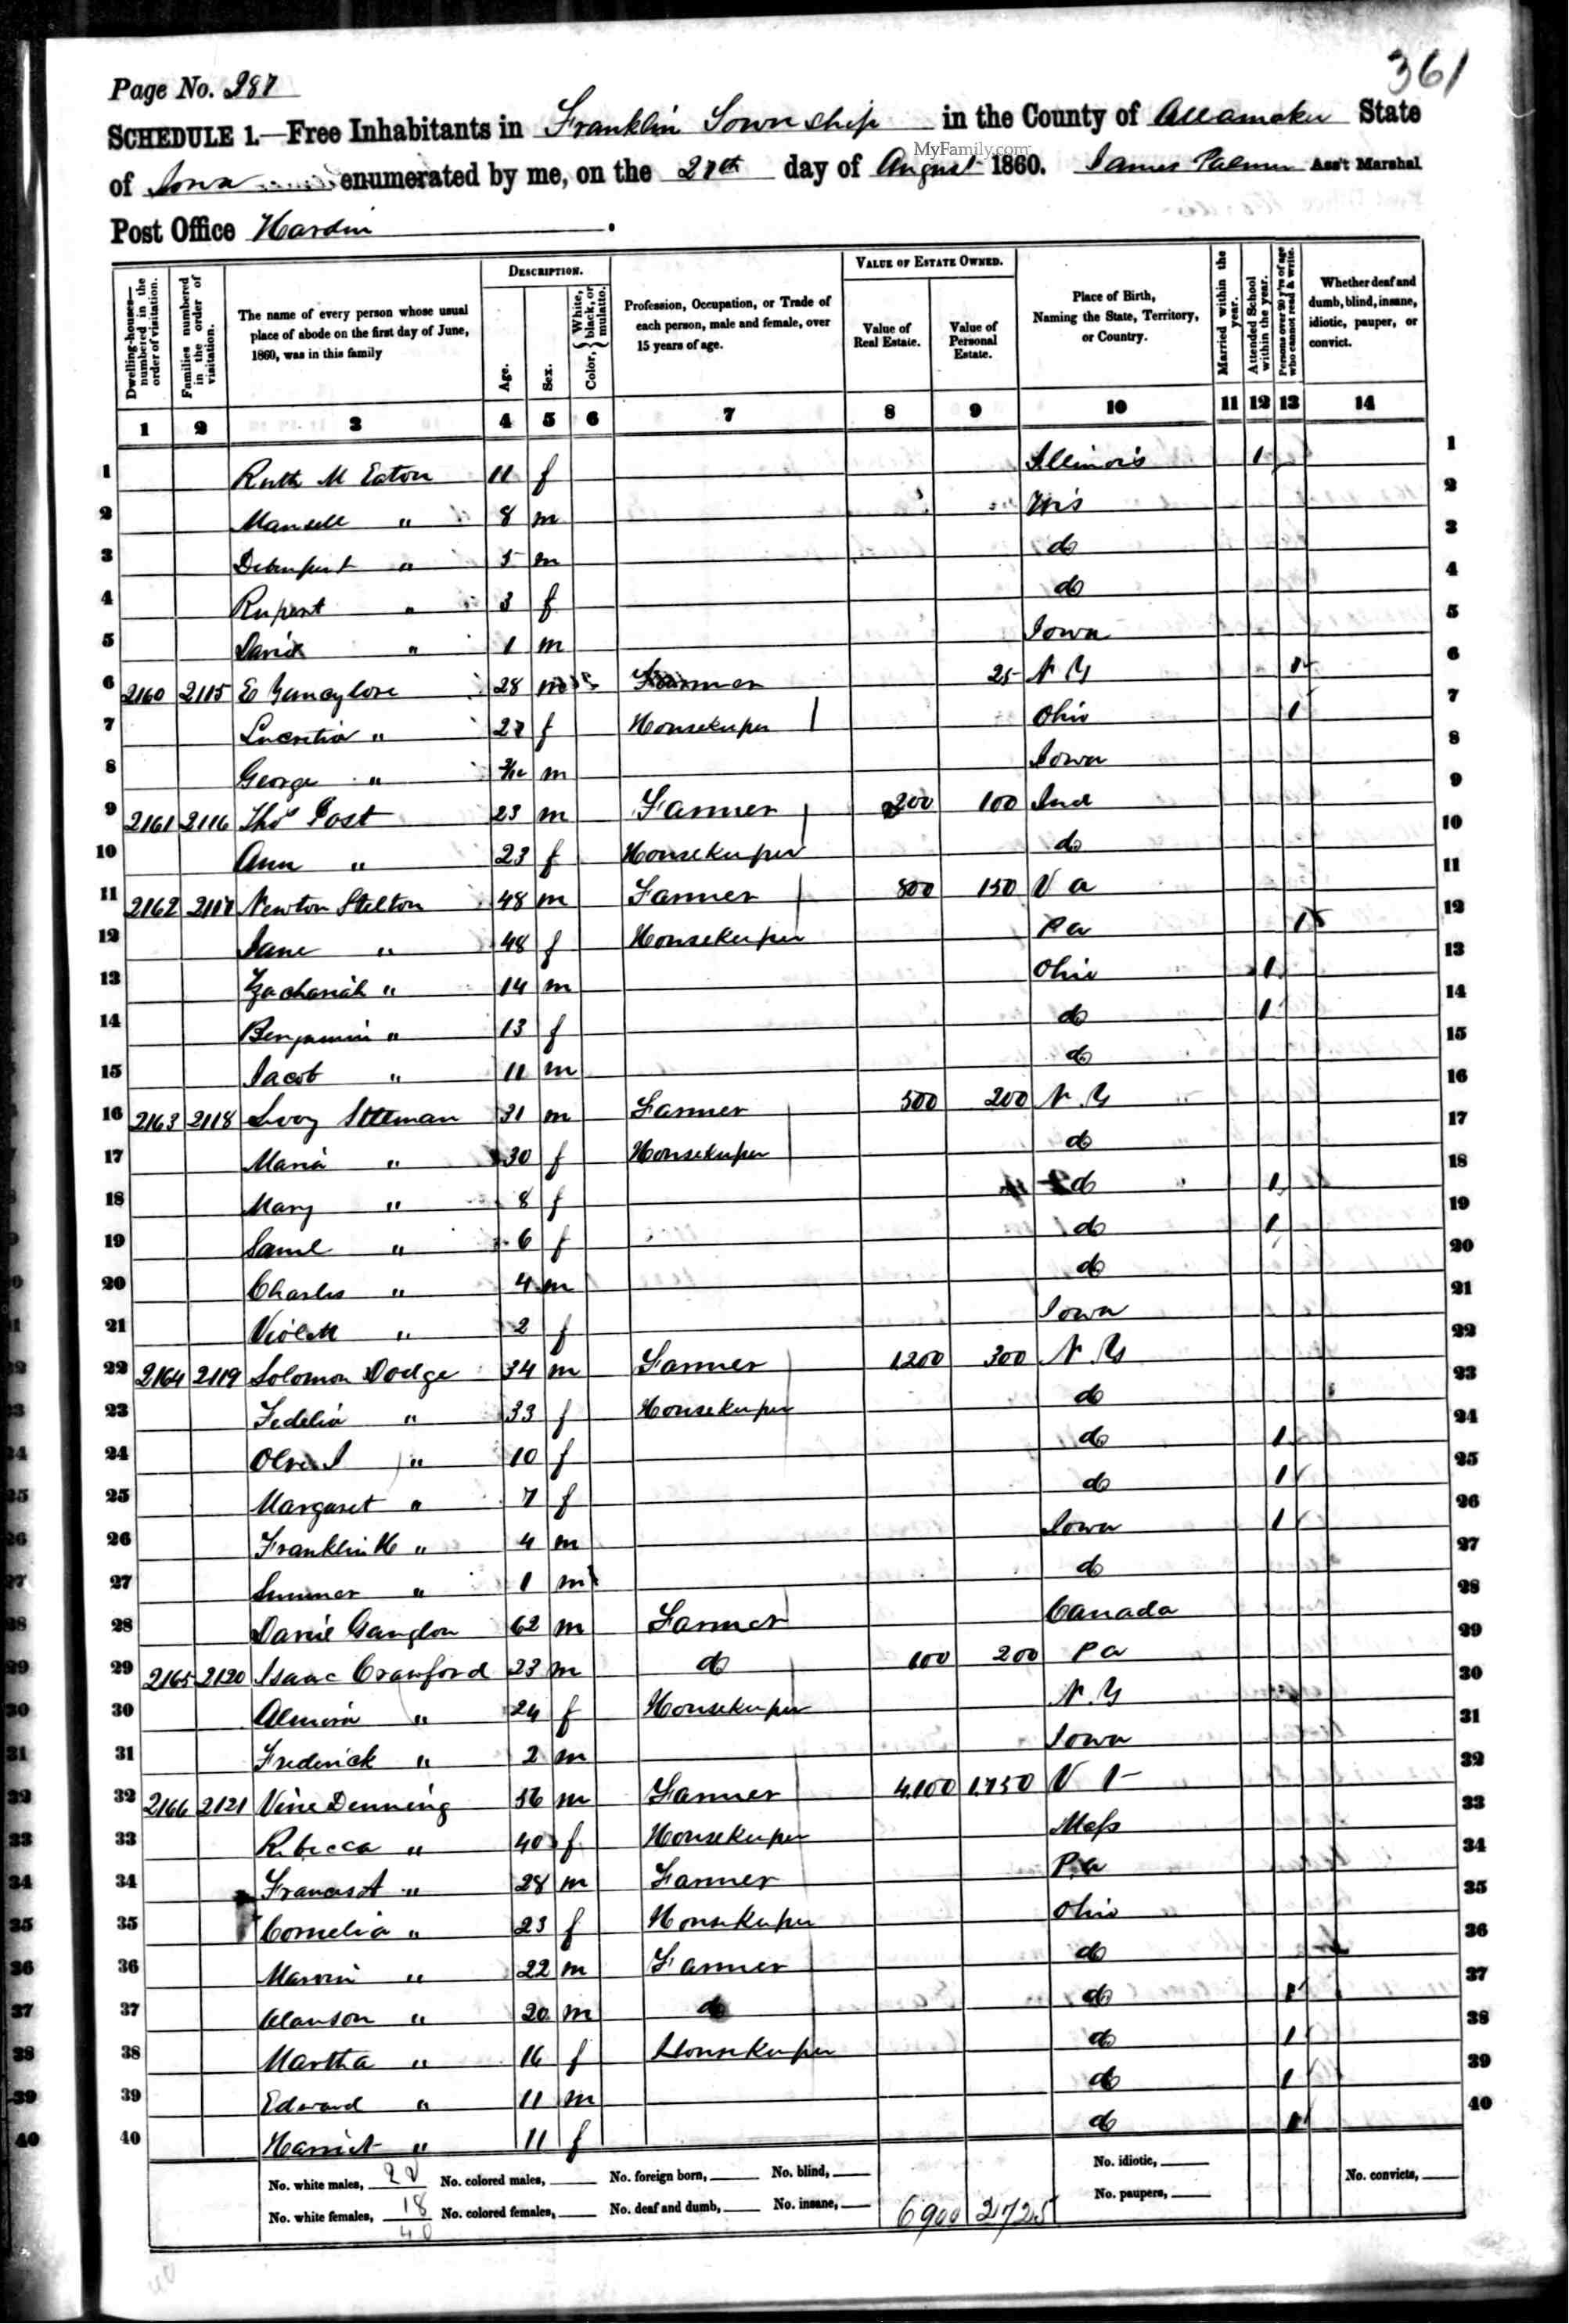 361
Page No. 287
SCHEDULE 1.—Free Inhabitants in Franklin Township in the County of Allamakee State
MyFamily.com
of Iowa enumerated by me, on the 27th day of August 1860. James Palmer Ass't Marshal
Post Office Hardin.
Dwelling-houses—numbered in the order of visitation. Families numbered in the order of visitation. The name of every person whose usual place of abode on the first day of June, 1860, was in this family DESCRIPTION. Age. Sex. Color, { White, black, or mulatto. Profession, Occupation, or Trade of each person, male and female, over 15 years of age. VALUE OF ESTATE OWNED. Value of Real Estate. Value of Personal Estate. Place of Birth, Naming the State, Territory, or Country. Married within the year. Attended School within the year. Persons over 20 y'rs of age who cannot read & write. Whether deaf and dumb, blind, insane, idiotic, pauper, or convict.
1 2 3 4 5 6 7 8 9 10 11 12 13 14
1 Ruth M Eaton 11 f Illinois 1 1
2 Mansell " 8 m Wis 2
3 " 5 m do 3
4 Rupert " 3 f do 4
5 David " 1 m Iowa 5
6 2160 2115 E 28 m Farmer 25 N Y 1 6
7 Lucretia " 27 f Housekeeper Ohio 1 7
8 George " m Iowa 8
9 2161 2116 Thos Post 23 m Farmer 200 100 Ind 9
10 Ann " 23 f Housekeeper do 10
11 2162 2117 Newton Stelton 48 m Farmer 800 150 Va 11
12 Jane " 48 f Housekeeper Pa 1 12
13 Zachariah " 14 m Ohio 1 13
14 Benjamin " 13 f do 1 14
15 Jacob " 11 m do 15
16 2163 2118 31 m Farmer 500 200 N.Y 16
17 Maria " 30 f Housekeeper do 17
18 Mary " 8 f do 1 18
19 Saml " 6 f do 1 19
20 Charles " 4 m do 20
21 Violett " 2 f Iowa 21
22 2164 2119 Solomon Dodge 34 m Farmer 1200 300 N.Y 22
23 Fedelia " 33 f Housekeeper do 23
24 " 10 f do 1 24
25 Margaret " 7 f do 1 25
26 Franklin H " 4 m Iowa 1 26
27 Sumner " 1 m do 27
28 62 m Farmer Canada 28
29 2165 2120 Isaac Crawford 23 m do 100 200 Pa 29
30 Almira " 24 f Housekeeper N.Y 30
31 Frederick " 2 m Iowa 31
32 2166 2121 Vine Denning 56 m Farmer 4,100 1,750 V t 32
33 Rebecca " 40 f Housekeeper Mass 33
34 Francis A " 28 m Farmer Pa 34
35 Cornelia " 23 f Housekeeper Ohio 35
36 Marvin " 22 m Farmer do 36
37 " 20 m do do 1 37
38 Martha " 16 f Housekeeper do 1 38
39 Edward " 11 m do 1 39
40 Harriet " 11 f do 1 40
No. white males, 22 No. colored males, No. foreign born, No. blind, No. idiotic, No. convicts,
No. white females, 18 No. colored females, No. deaf and dumb, No. insane, 6900 2725 No. paupers,
40